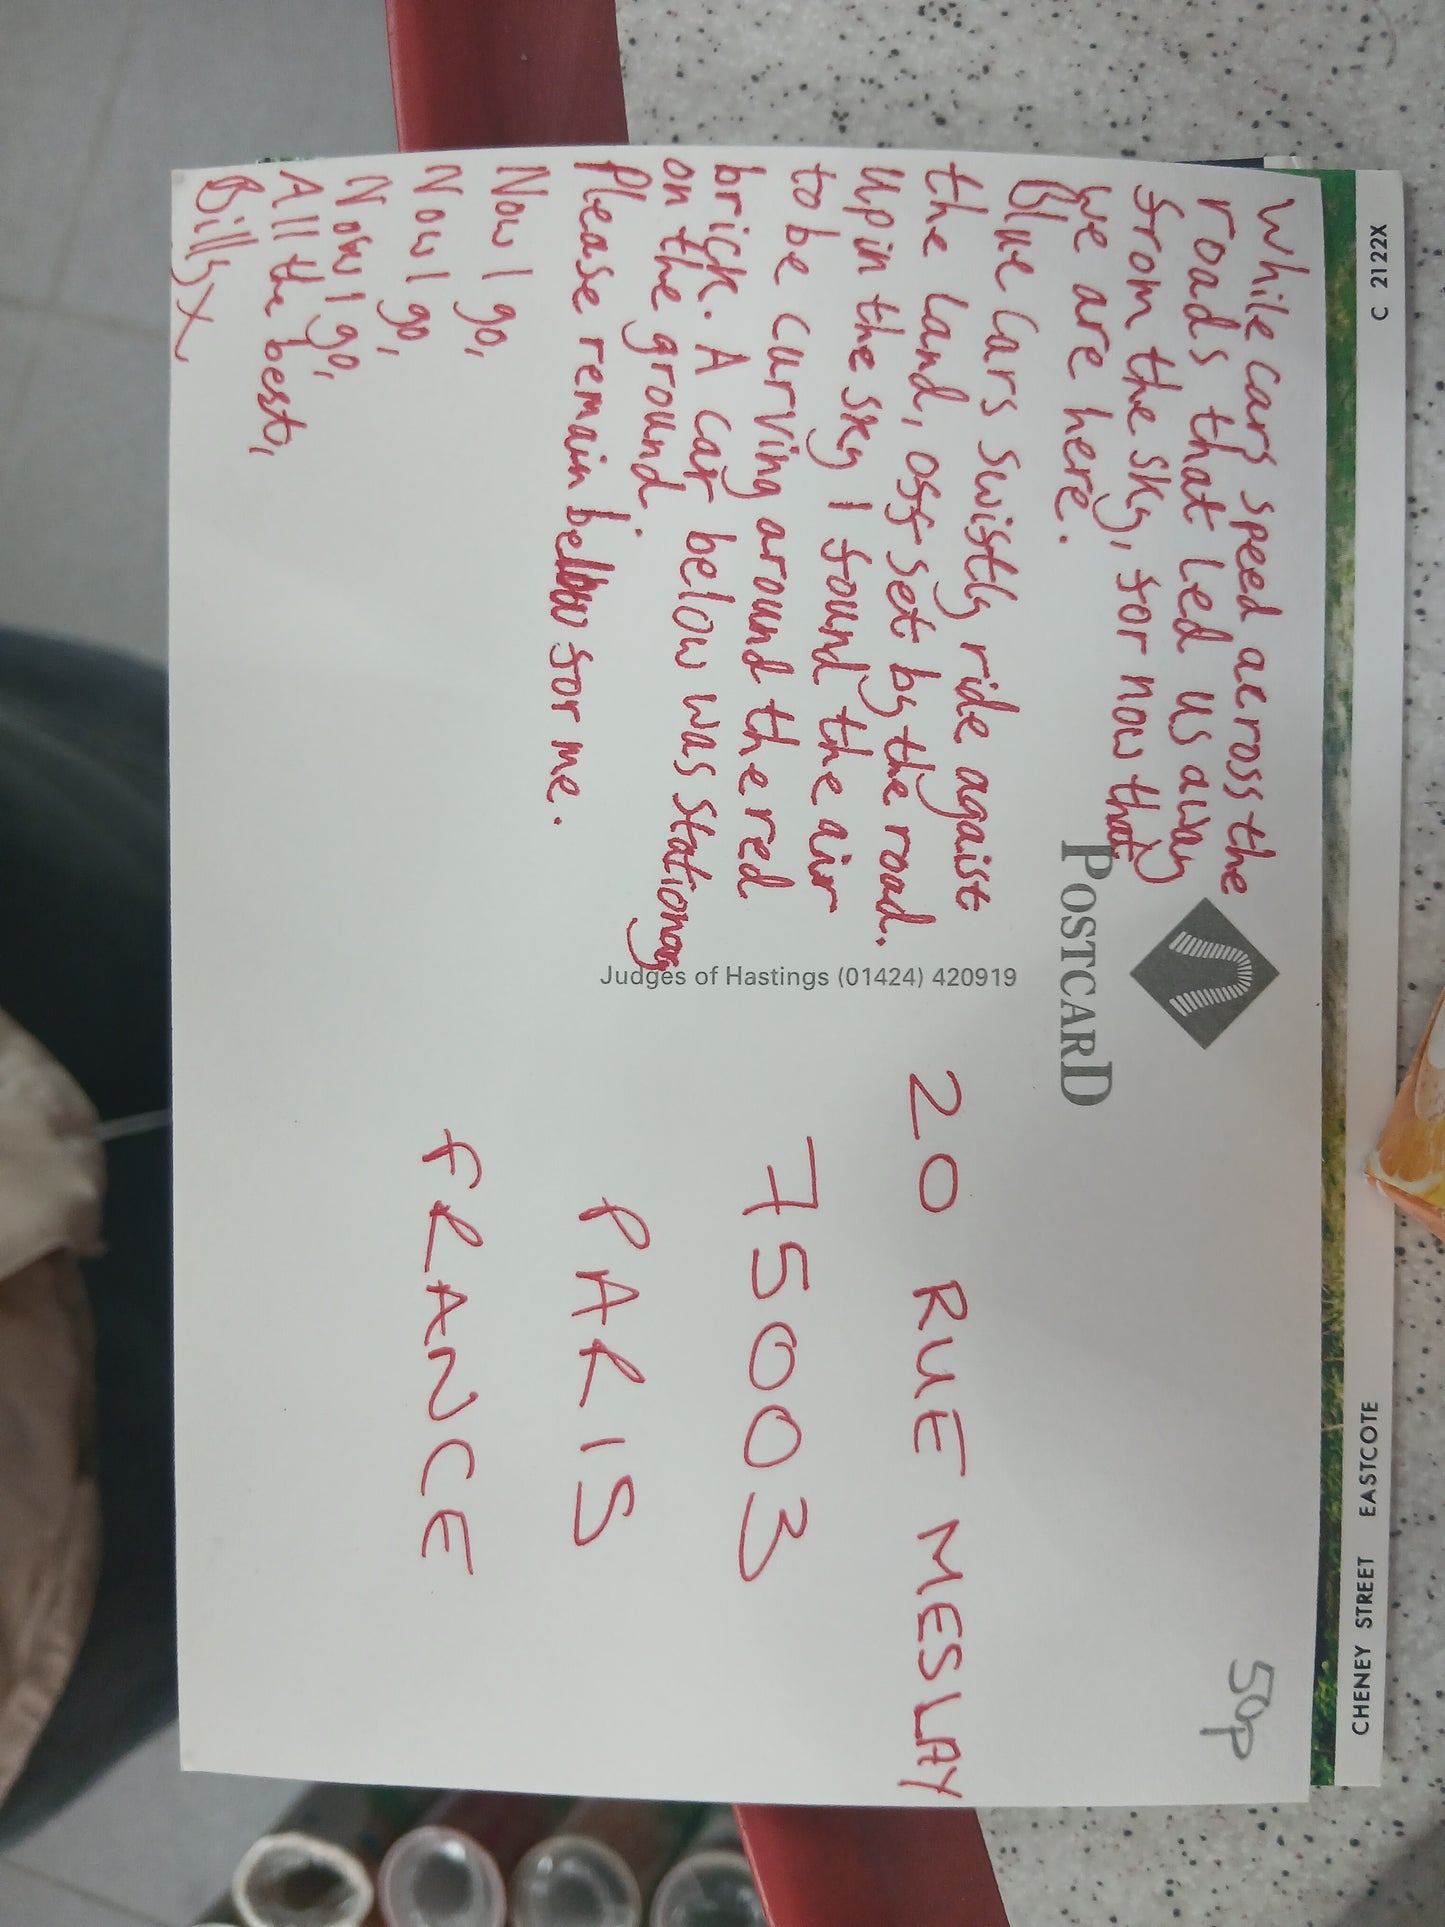 While cars speed across the
roads that led us away
from the sky, for now that
we are here.
Blue cars swistly ride agaist
the land, off set by the road.
Up in the sky I found the air
to be curving around the red
brick. A car below was stationary
on the ground.
Please remain below for me.
Now I go,
Now I go,
Now I go,
All the best,
Billy X
POSTCARD
Judges of Hastings (01424) 420919
50p
20 RUE MESLAY
75003
PARIS
FRANCE
C 2122X
CHENEY STREET EASTCOTE